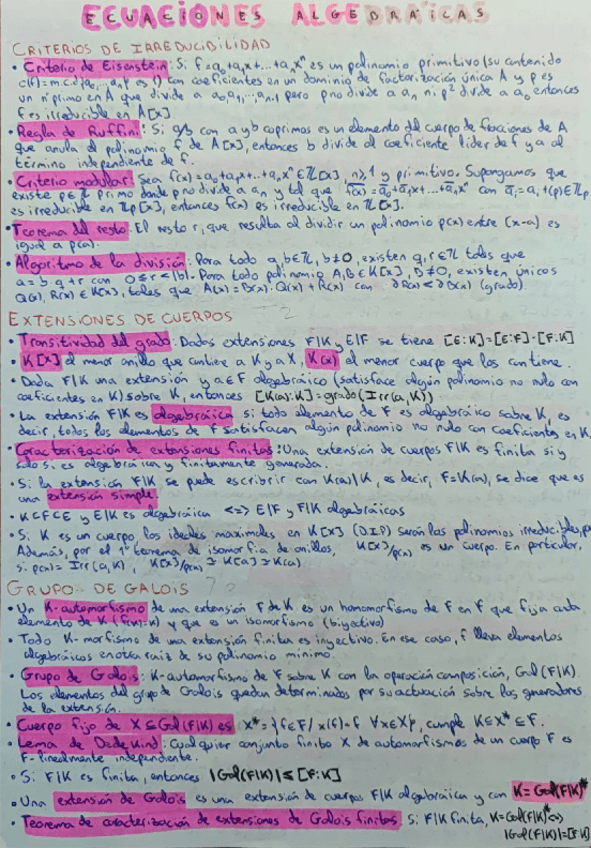 ECUACIONES ALGEBRAICAS
CRITERIOS DE IRREDUCIBILIDAD
• Criterio de Eisenstein: Si f=a₀+a₁x+...+aₙxⁿ es un polinomio primitivo (su contenido
c(f)=m.c.d{a₀,...,aₙ} es 1) con coeficientes en un dominio de factorización única A y p es
un nº primo en A que divide a a₀,a₁,...,aₙ₋₁ pero p no divide a aₙ ni p² divide a a₀ entonces
f es irreducible en A[x]
• Regla de Ruffini: Si a/b con a y b coprimos es un elemento del cuerpo de fracciones de A
que anula el polinomio f de A[x], entonces b divide al coeficiente líder de f y a al
término independiente de f.
• Criterio modular: Sea f(x)=a₀+a₁x+...+aₙxⁿ ∈ ℤ[x], n≥1 y primitivo. Supongamos que
existe p∈ℤ primo donde p no divide a aₙ y tal que f̄(x)=ā₀+ā₁x+...+āₙxⁿ con āᵢ=aᵢ+(p)∈ℤp
es irreducible en ℤp[x], entonces f(x) es irreducible en ℤ[x].
• Teorema del resto: El resto r, que resulta al dividir un polinomio p(x) entre (x-a) es
igual a p(a).
• Algoritmo de la división: Para todo a,b∈ℤ, b≠0, existen q,r∈ℤ tales que
a=b·q+r con 0≤r<|b|. Para todo polinomio A,B∈K[x], B≠0, existen únicos
Q(x), R(x)∈K[x], tales que A(x)=B(x)·Q(x)+R(x) con ∂R(x)<∂B(x) (grado)
EXTENSIONES DE CUERPOS
• Transitividad del grado: Dadas extensiones F|K y E|F se tiene [E:K]=[E:F]·[F:K]
• K[X] el menor anillo que contiene a K y a X, K(X) el menor cuerpo que los contiene.
• Dada F|K una extensión y a∈F algebraico (satisface algún polinomio no nulo con
coeficientes en K) sobre K, entonces [K(a):K]=grado(Irr(a,K))
• La extensión F|K es algebraica si todo elemento de F es algebraico sobre K, es
decir, todos los elementos de F satisfacen algún polinomio no nulo con coeficientes en K.
• Caracterización de extensiones finitas: Una extensión de cuerpos F|K es finita si y
solo si es algebraica y finitamente generada.
• Si la extensión F|K se puede escribrir con K(a)|K, es decir, F=K(a), se dice que es
una extensión simple.
• K⊂F⊂E y E|K es algebraica <=> E|F y F|K algebraicas
• Si K es un cuerpo, los ideales maximales en K[x] (D.I.P) serán los polinomios irreducibles,
Además, por el 1º teorema de isomorfía de anillos, K[x]/p(x) es un cuerpo. En particular,
si p(x)=Irr(a,K), K[x]/p(x) ≅ K[a] ≅ K(a)
GRUPO DE GALOIS
• Un K-automorfismo de una extensión F de K es un homomorfismo de F en F que fija cada
elemento de K (f(k)=k) y que es un isomorfismo (biyectivo)
• Todo K-morfismo de una extensión finita es inyectivo. En ese caso, f lleva elementos
algebraicos en otra raíz de su polinomio mínimo.
• Grupo de Galois: K-automorfismo de F sobre K con la operación composición, Gal(F|K).
Los elementos del grupo de Galois quedan determinados por su actuación sobre los generadores
de la extensión.
• Cuerpo fijo de X⊆Gal(F|K) es X*={f∈F/ x(f)=f ∀x∈X}, cumple K⊆X*⊆F.
• Lema de Dedekind: Cualquier conjunto finito X de automorfismos de un cuerpo F es
F-linealmente independiente.
• Si F|K es finita, entonces |Gal(F|K)|≤[F:K]
• Una extensión de Galois es una extensión de cuerpos F|K algebraica y con K=Gal(F|K)*
• Teorema de caracterización de extensiones de Galois finitas. Si F|K finita, K=Gal(F|K)*<=>
|Gal(F|K)|=[F:K]